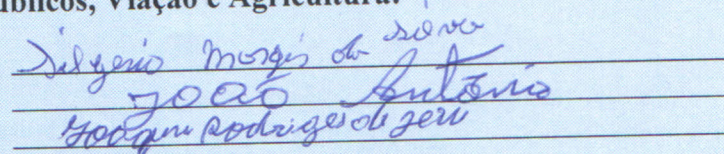 blicos, Viação e Agricultura.
Silverio Morais da Silva
João Antônio
Joaquim Rodriges de